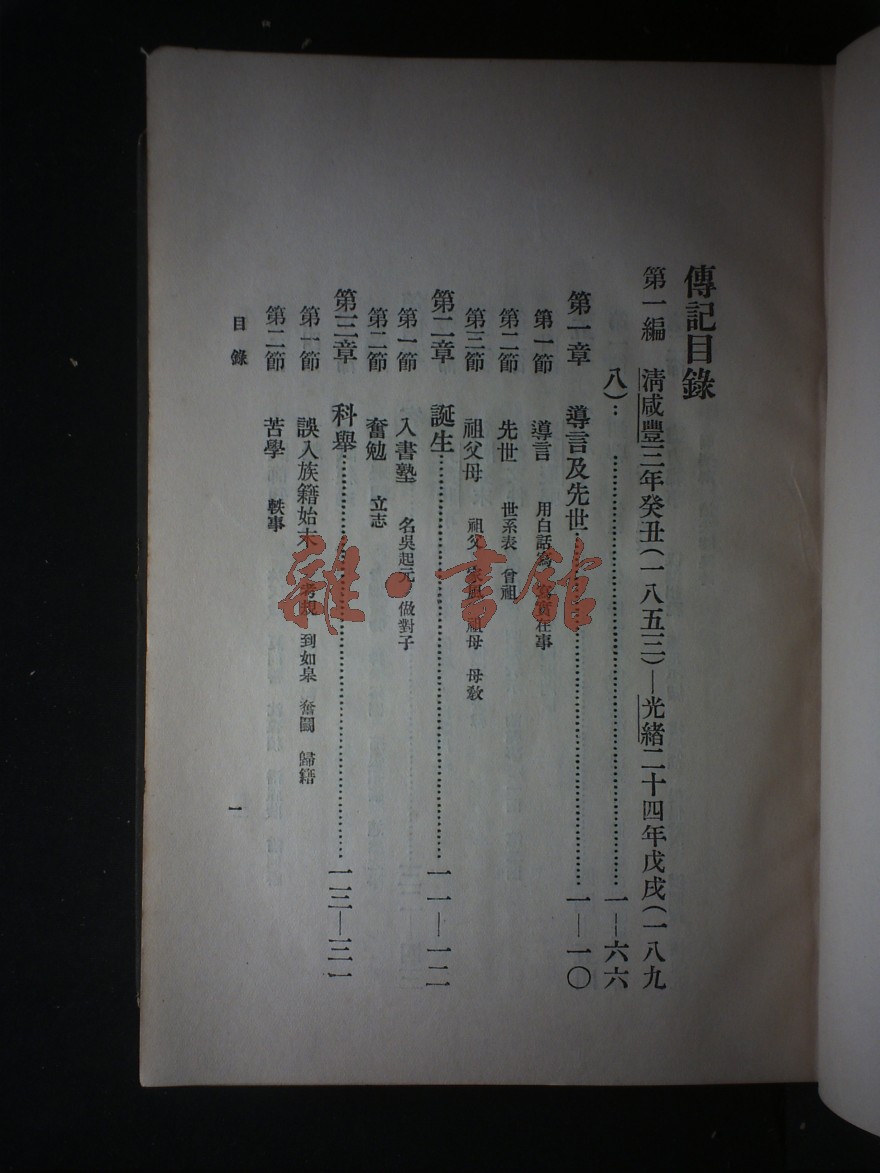 傳記目錄
第一編 清咸豐三年癸丑(一八五三)—光緒二十四年戊戌(一八九
八):……………………一—六六
第一章 導言及先世……………………一—一〇
第一節 導言 用白話寫 寫實在事
第二節 先世 世系表 曾祖
第三節 祖父母 祖父 祖母 母教
第二章 誕生……………………一一—一二
第一節 入書塾 名吳起元 做對子
第二節 奮勉 立志
第三章 科舉……………………一三—三一
第一節 誤入族籍始末 到如皋 奮鬪 歸籍
第二節 苦學 軼事
目錄
一
雜·書館